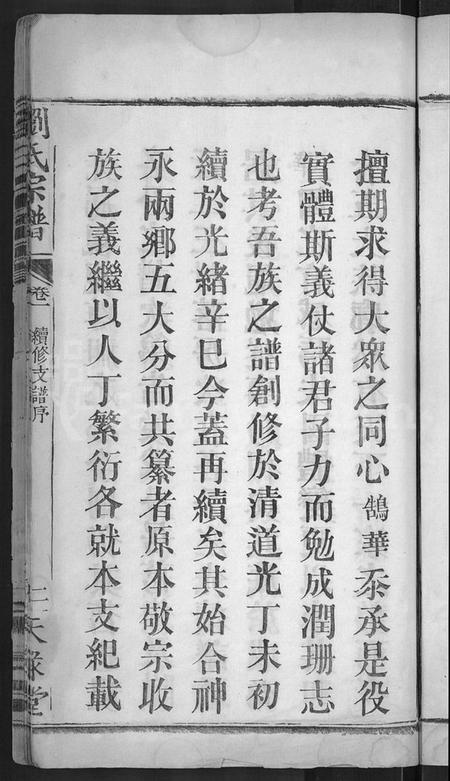 擅期求得大衆之同心鵠華忝承是役
實體斯義仗諸君子力而勉成潤珊志
也考吾族之譜創修於清道光丁未初
續於光緒辛巳今蓋再續矣其始合神
永兩鄉五大分而共纂者原本敬宗收
族之義繼以人丁繁衍各就本支紀載
劉氏宗譜
卷一
續修支譜序
堂